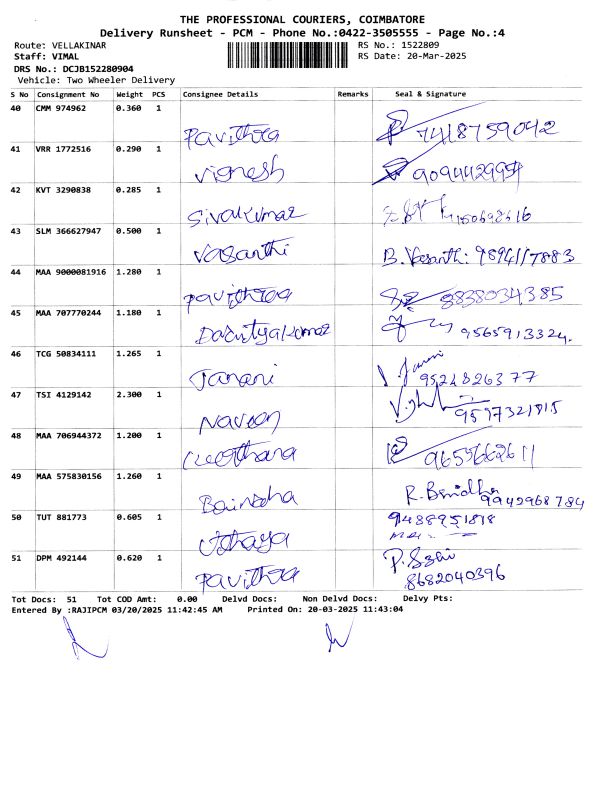 THE PROFESSIONAL COURIERS, COIMBATORE
Delivery Runsheet - PCM - Phone No.:0422-3505555 - Page No.:4
Route: VELLAKINAR RS No.: 1522809
Staff: VIMAL RS Date: 20-Mar-2025
DRS No.: DCJB152280904
Vehicle: Two Wheeler Delivery
S No Consignment No Weight PCS Consignee Details Remarks Seal & Signature
40 CMM 974962 0.360 1
Pavithra 7418759042
41 VRR 1772516 0.290 1
Vignesh
42 KVT 3290838 0.285 1
Sivakumar
43 SLM 366627947 0.500 1
Vasanthi B. Vasanthi: 9894117883
44 MAA 9000081916 1.280 1
Pavithra 9838034385
45 MAA 707770244 1.180 1
9565913324.
46 TCG 50834111 1.265 1
Janani
47 TSI 4129142 2.300 1
Naveen 9597321815
48 MAA 706944372 1.200 1
49 MAA 575830156 1.260 1
9942968784
50 TUT 881773 0.605 1
Uthaya
51 DPM 492144 0.620 1
Pavithra 8682040396
Tot Docs: 51 Tot COD Amt: 0.00 Delvd Docs: Non Delvd Docs: Delvy Pts:
Entered By :RAJIPCM 03/20/2025 11:42:45 AM Printed On: 20-03-2025 11:43:04